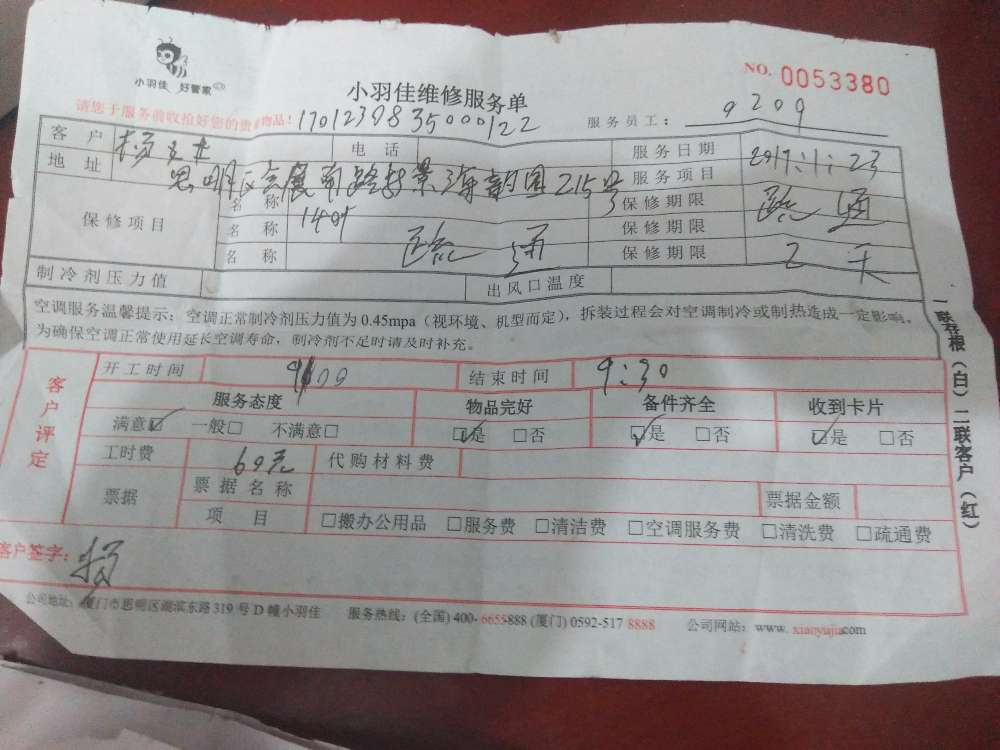 小羽佳 好管家
NO. 0053380
小羽佳维修服务单
请您于服务前收拾好您的贵 物品! 1701239835000122
服务员工: 9209
客户 杨 电话 服务日期 2017.1.23
地址 思明区会展南路 215号 服务项目 疏通
保修项目 名称 1401 保修期限
名称 疏通 保修期限
名称 保修期限 2天
制冷剂压力值 出风口温度
空调服务温馨提示: 空调正常制冷剂压力值为 0.45mpa (视环境、机型而定), 拆装过程会对空调制冷或制热造成一定影响。
为确保空调正常使用延长空调寿命, 制冷剂不足时请及时补充。
一联存根(白) 二联客户(红)
客户评定
开工时间 9:00 结束时间 9:30
服务态度 物品完好 备件齐全 收到卡片
满意☑ 一般□ 不满意□ ☑是 □否 ☑是 □否 ☑是 □否
工时费 60元 代购材料费
票据 票据名称 票据金额
项目 □搬办公用品 □服务费 □清洁费 □空调服务费 □清洗费 □疏通费
客户签字: 杨
公司地址: 厦门市思明区湖滨东路 319 号 D 幢小羽佳 服务热线: (全国) 400-6655888 (厦门) 0592-517 8888 公司网站: www.xiaoyujia.com